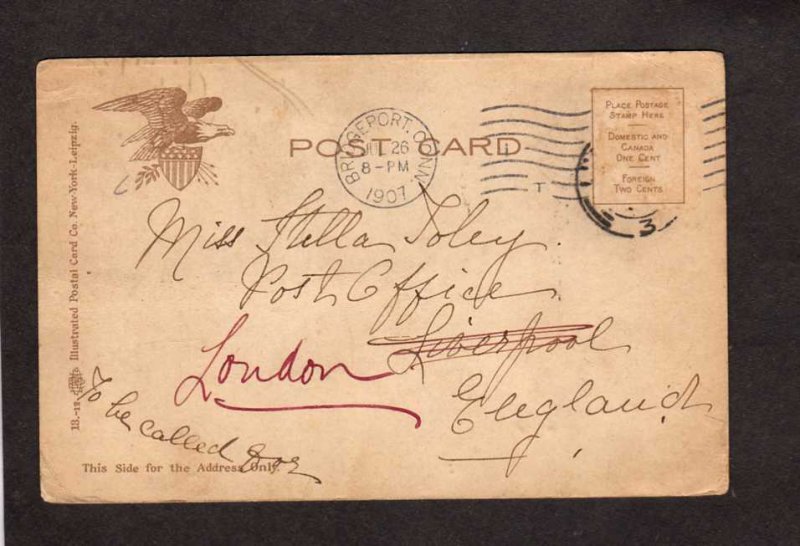 POST CARD
BRIDGEPORT, CONN.
JUL 26
8-PM
1907
T
PLACE POSTAGE
STAMP HERE
DOMESTIC AND
CANADA
ONE CENT
FOREIGN
TWO CENTS
3
Miss Stella Foley.
Post Office
Liverpool
London
England
To be called for
This Side for the Address Only.
13.-12. Illustrated Postal Card Co. New-York-Leipzig.